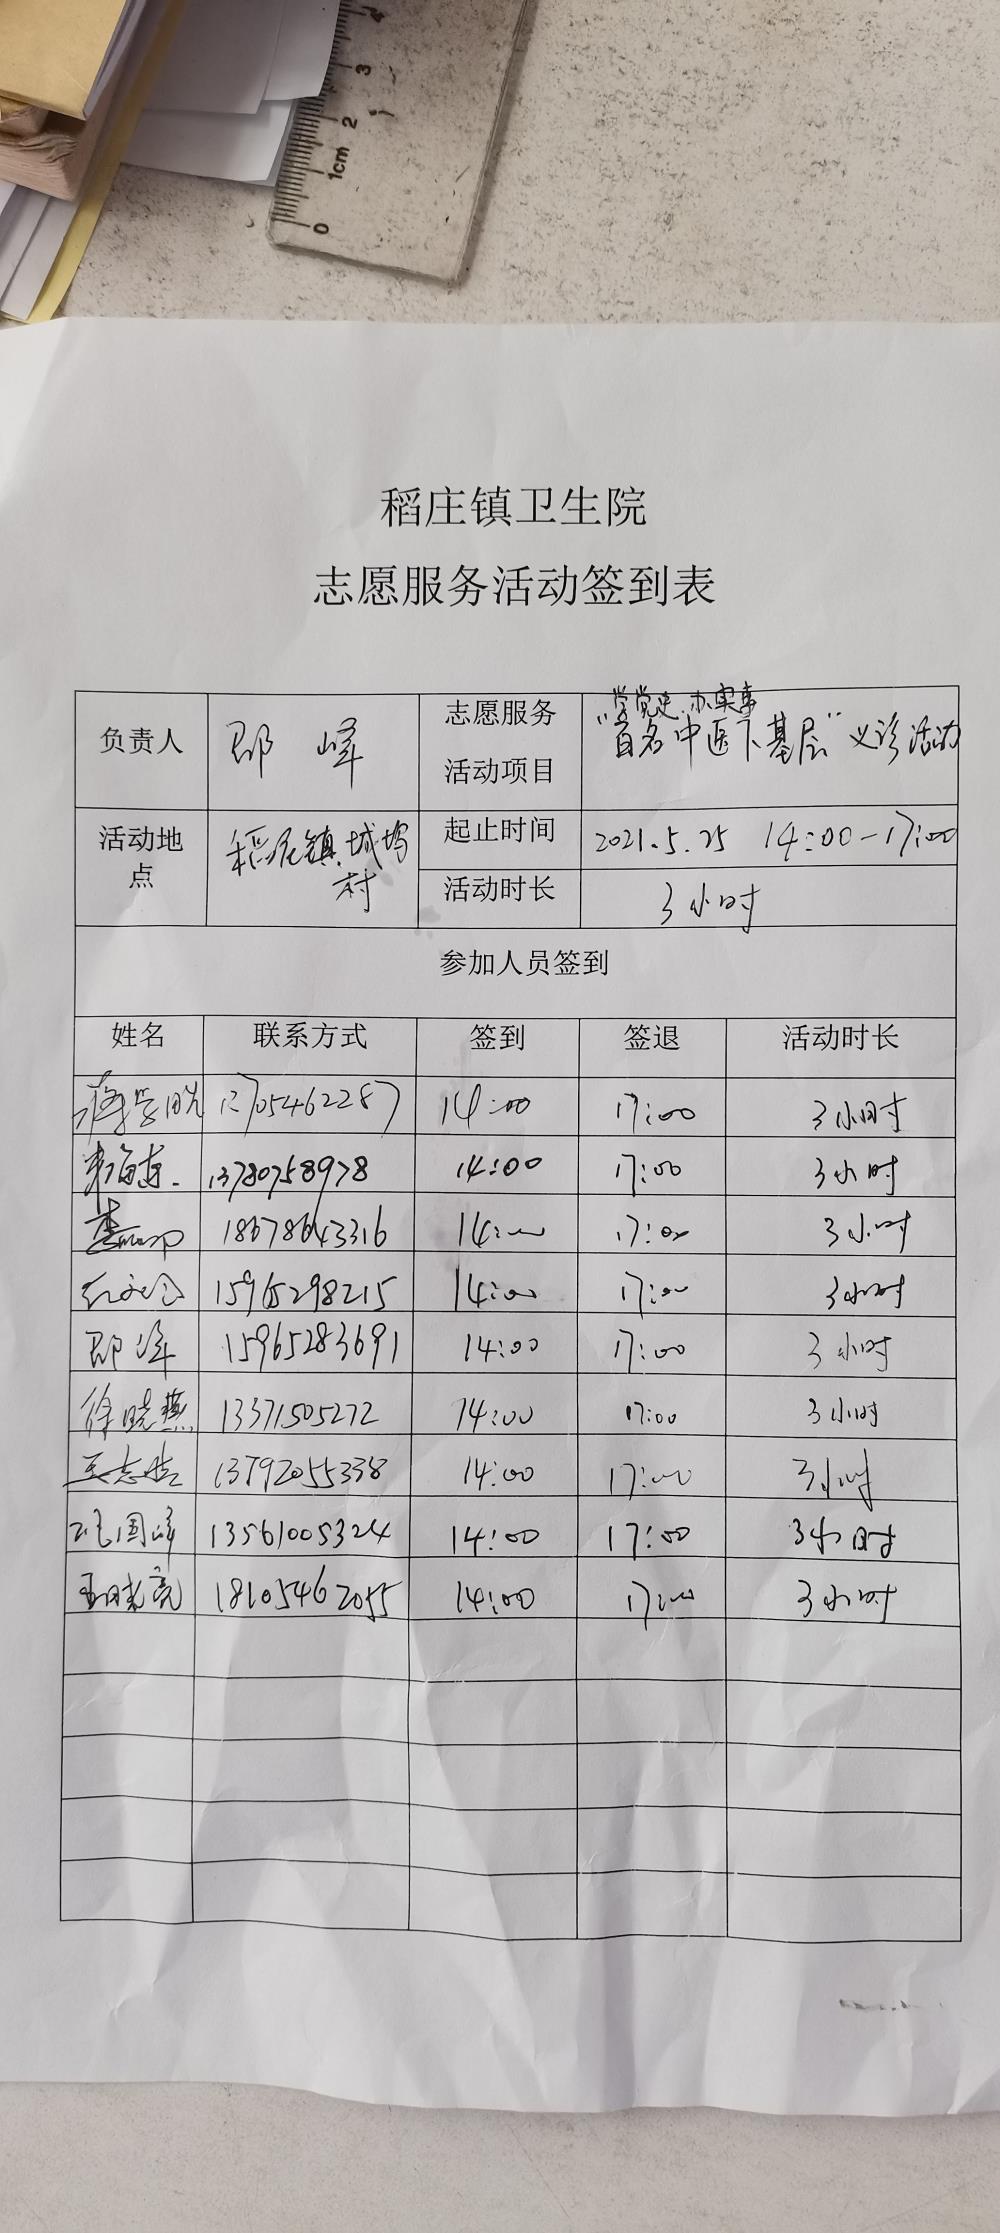 0 1cm 2 3 4
稻庄镇卫生院
志愿服务活动签到表
负责人 郡峰 志愿服务活动项目 "学党史、办实事
百名中医下基层"义诊活动
活动地点 稻庄镇 村 起止时间 2021.5.25 14:00-17:00
活动时长 3小时
参加人员签到
姓名 联系方式 签到 签退 活动时长
13705462287 14:00 17:00 3小时
13780758978 14:00 17:00 3小时
18678643316 14:00 17:00 3小时
15965298215 14:00 17:00 3小时
郡峰 15965283691 14:00 17:00 3小时
徐晓燕 13371505272 14:00 17:00 3小时
13792055338 14:00 17:00 3小时
国峰 13561005324 14:00 17:00 3小时
王晓亮 18105462055 14:00 17:00 3小时